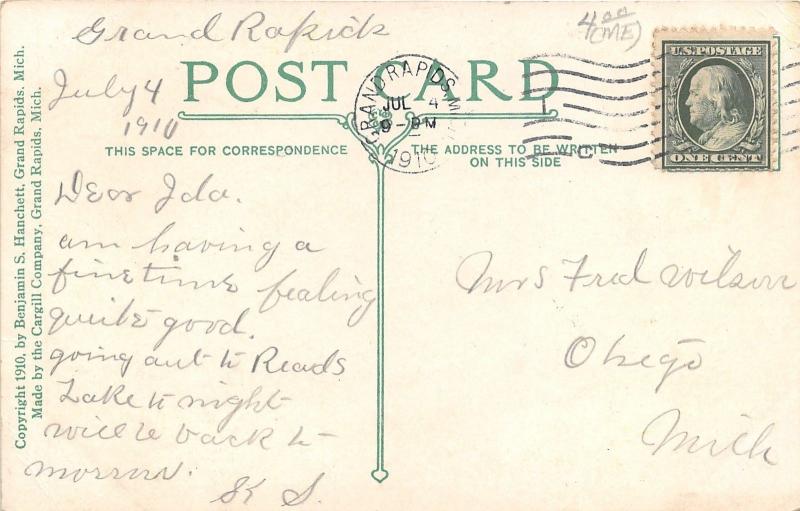 Grand Rapids
4.00
(ME)
July 4
1910
POST CARD
GRAND RAPIDS, M
JUL 4
9-PM
1910
U.S. POSTAGE
ONE CENT
THIS SPACE FOR CORRESPONDENCE
THE ADDRESS TO BE WRITTEN
ON THIS SIDE
Dear Ida.
am having a
fine time fealing
quite good.
going out to Reads
Lake to night
will be back to
morrow.
K S.
Mrs Fred Wilson
Otsego
Mich
Copyright 1910, by Benjamin S. Hanchett, Grand Rapids, Mich.
Made by the Cargill Company, Grand Rapids, Mich.